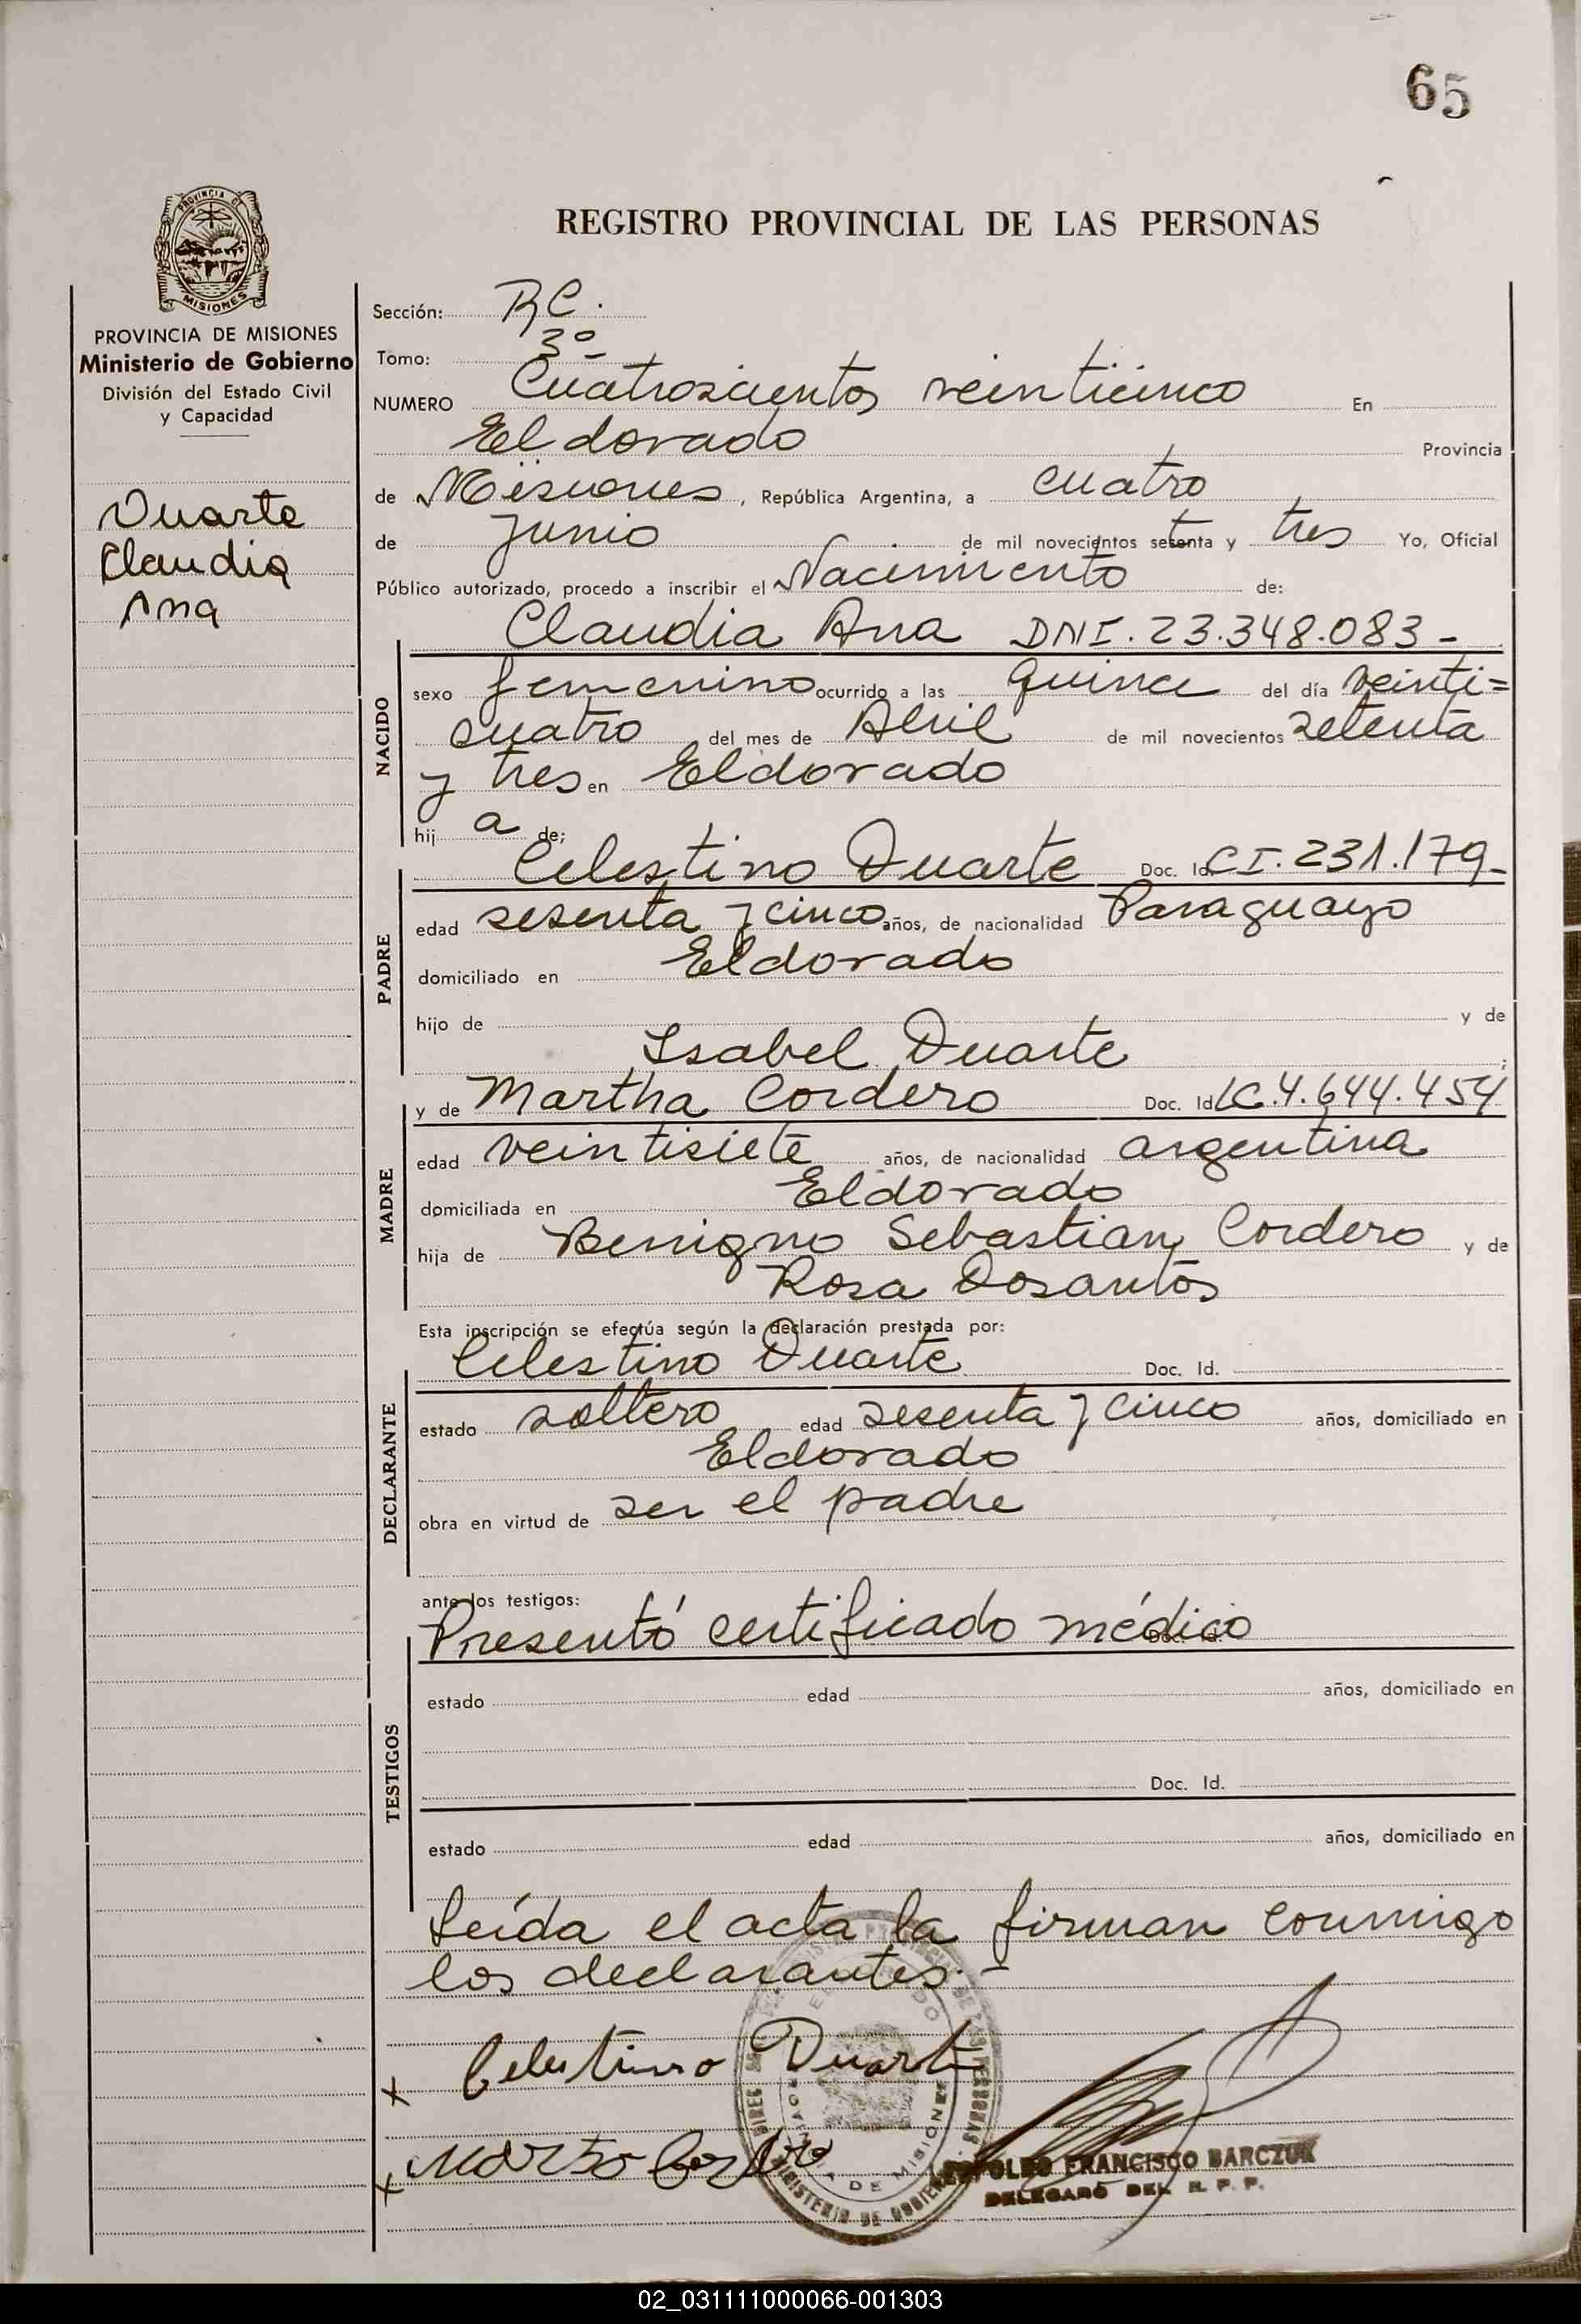 65
PROVINCIA DE
MISIONES
REGISTRO PROVINCIAL DE LAS PERSONAS
PROVINCIA DE MISIONES
Ministerio de Gobierno
División del Estado Civil
y Capacidad
Duarte
Claudia
Ana
Sección: RC.
Tomo: 3º
NUMERO Cuatroscientos veinticinco En
Eldorado Provincia
de Misiones, República Argentina, a cuatro
de Junio de mil novecientos setenta y tres Yo, Oficial
Público autorizado, procedo a inscribir el Nacimiento de:
NACIDO
Claudia Ana DNI. 23.348.083-
sexo femenino ocurrido a las quince del día veinti=
cuatro del mes de Abril de mil novecientos setenta
y tres en Eldorado
hij a de;
PADRE
Celestino Duarte Doc. Id. CI. 231.179-
edad sesenta y cinco años, de nacionalidad Paraguayo
domiciliado en Eldorado
hijo de y de
Isabel Duarte ;
MADRE
y de Martha Cordero Doc. Id. LC. 4.644.454
edad veintisiete años, de nacionalidad argentina
domiciliada en Eldorado
hija de Benigno Sebastian Cordero y de
Rosa Dosantos
Esta inscripción se efectúa según la declaración prestada por:
DECLARANTE
Celestino Duarte Doc. Id.
estado soltero edad sesenta y cinco años, domiciliado en
Eldorado
obra en virtud de ser el padre
ante los testigos:
Presentó certificado médico Doc. Id.
TESTIGOS
estado edad años, domiciliado en
Doc. Id.
estado edad años, domiciliado en
Leída el acta la firman conmigo
los declarantes.-
x Celestino Duarte
x
FRANCISCO BARCZUK
DELEGADO DEL R. P. P.
DE MISIONES
MINISTERIO DE GOBIERNO
02_031111000066-001303